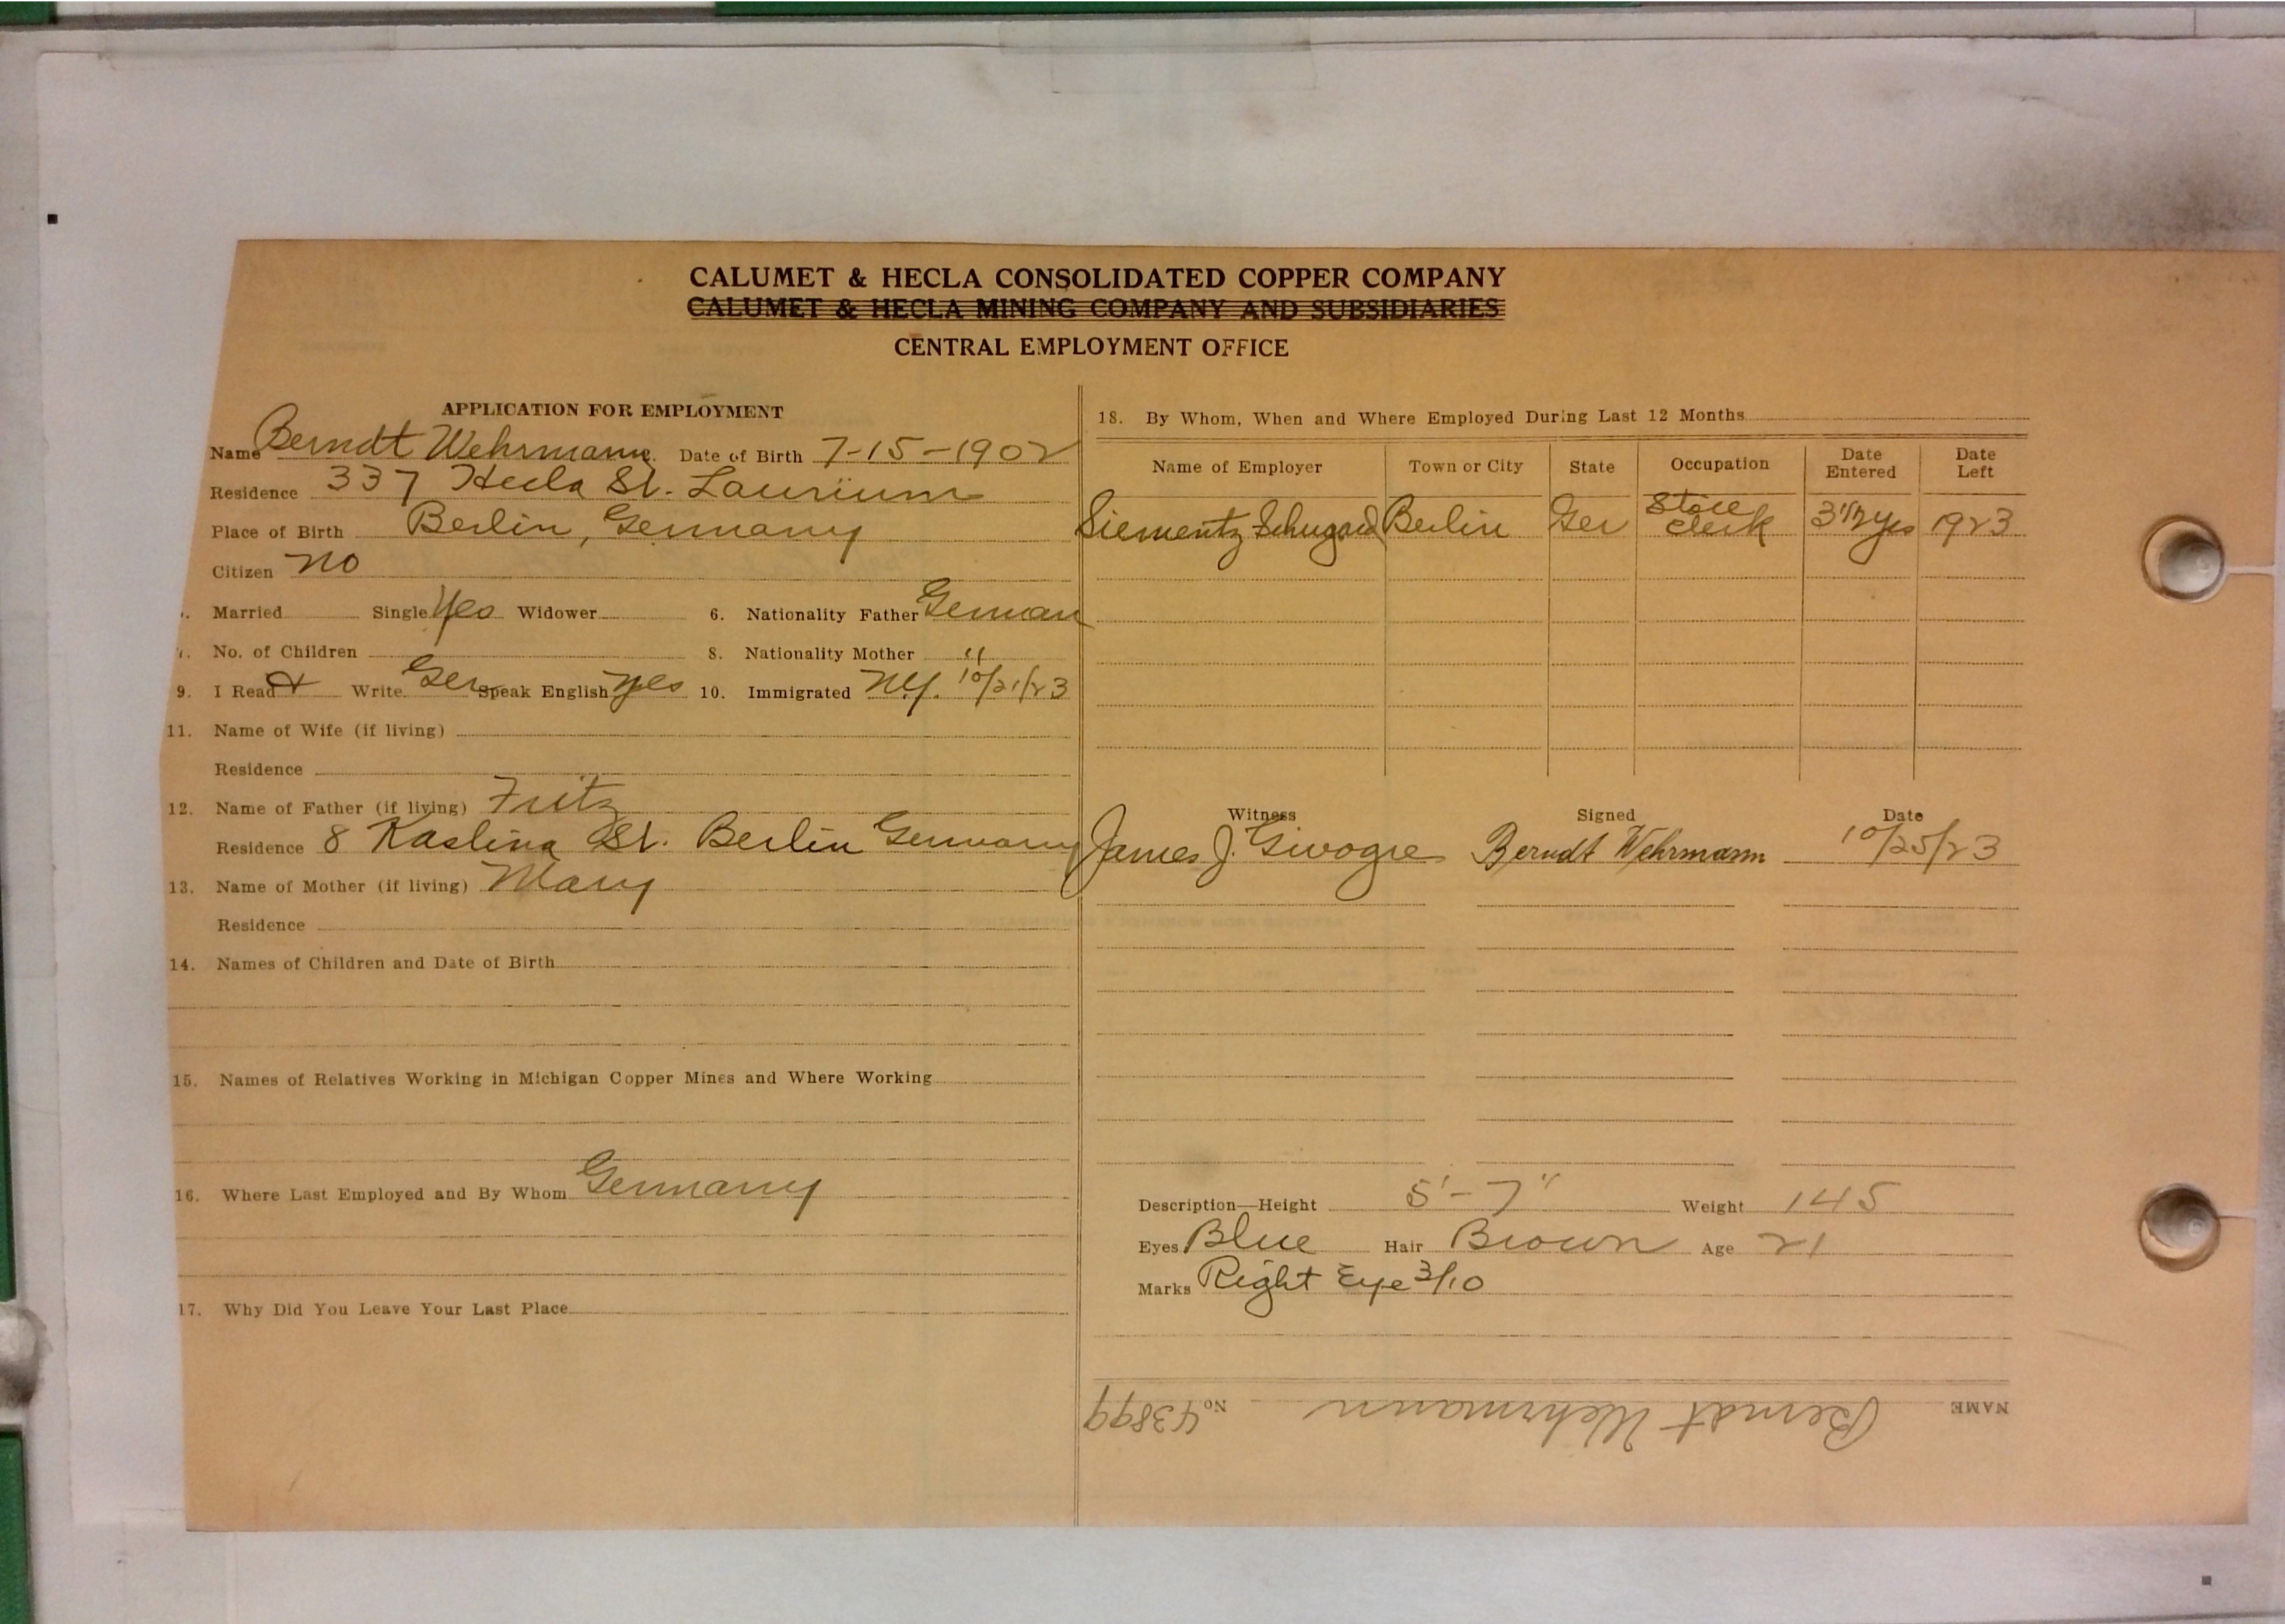 CALUMET & HECLA CONSOLIDATED COPPER COMPANY
CALUMET & HECLA MINING COMPANY AND SUBSIDIARIES
CENTRAL EMPLOYMENT OFFICE
APPLICATION FOR EMPLOYMENT
Name Berndt Wehrmann. Date of Birth 7-15-1902
Residence 337 Hecla St. Laurium
Place of Birth Berlin, Germany
Citizen no
Married Single Yes Widower 6. Nationality Father German
No. of Children 8. Nationality Mother "
9. I Read & Write Ger Speak English yes 10. Immigrated N.Y. 10/21/23
11. Name of Wife (if living)
Residence
12. Name of Father (if living) Fritz
Residence 8 St. Berlin Germany
13. Name of Mother (if living) Mary
Residence
14. Names of Children and Date of Birth
15. Names of Relatives Working in Michigan Copper Mines and Where Working
16. Where Last Employed and By Whom Germany
17. Why Did You Leave Your Last Place
18. By Whom, When and Where Employed During Last 12 Months
Name of Employer Town or City State Occupation Date Entered Date Left
Siementz Berlin Ger Store Clerk 3 1/2 yrs 1923
Witness Signed Date
James J. Berndt Wehrmann 10/25/23
Description—Height 5'-7" Weight 145
Eyes Blue Hair Brown Age 21
Marks Right Eye 3/10
NAME Berndt Wehrmann No. 43899